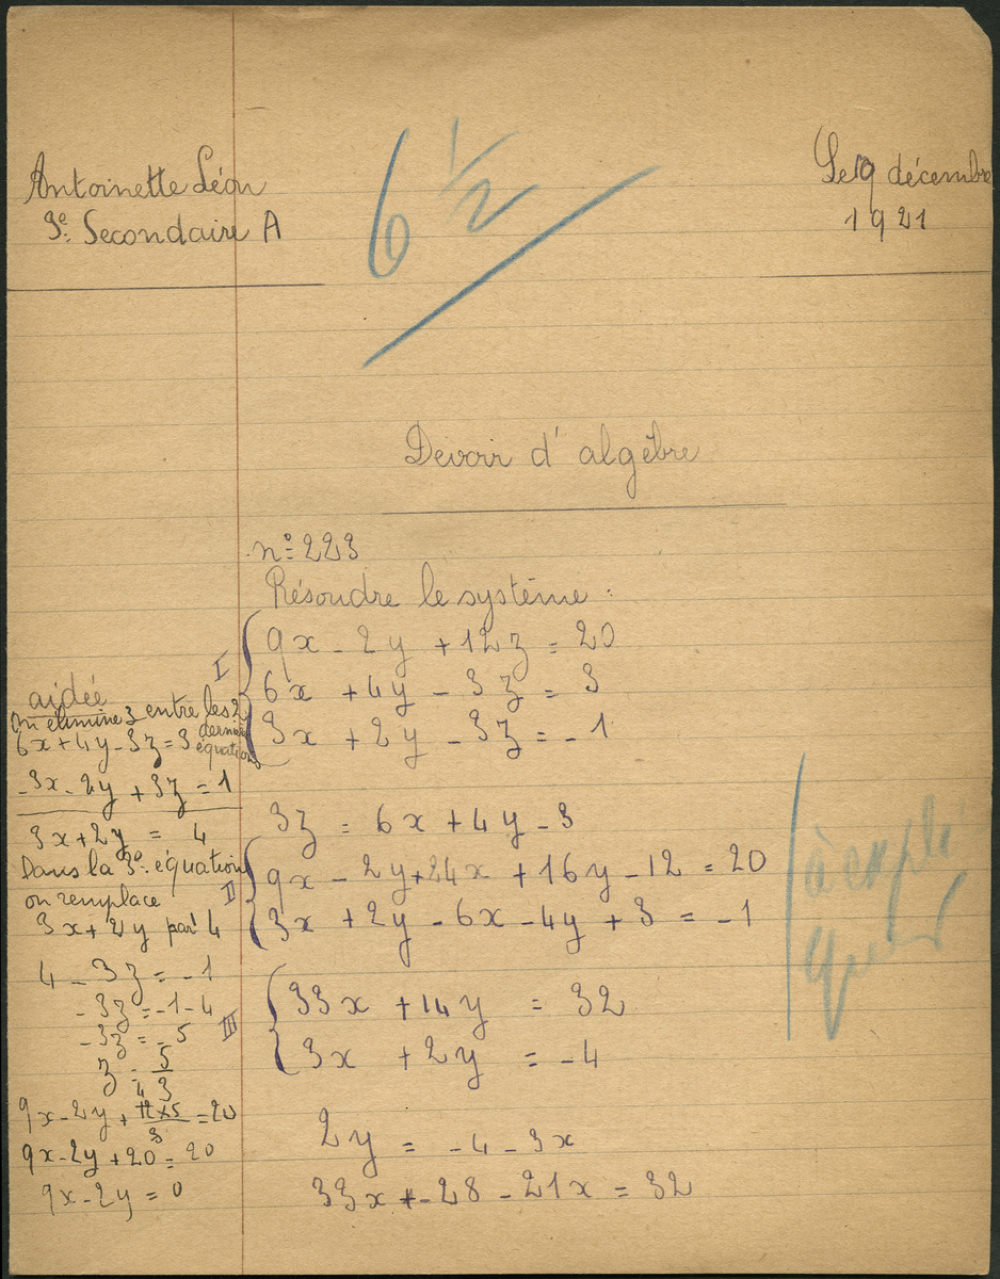 Antoinette Léon
3e Secondaire A
6 1/2
Le 9 décembre
1921
Devoir d'algèbre
n° 223
Résoudre le système :
I
9x - 2y + 12z = 20
6x + 4y - 3z = 3
3x + 2y - 3z = -1
3z = 6x + 4y - 3
II
9x - 2y + 24x + 16y - 12 = 20
3x + 2y - 6x - 4y + 3 = -1
III
33x + 14y = 32
3x + 2y = -4
2y = -4 - 3x
33x + -28 - 21x = 32
aidée
on élimine z entre les 2
dernières
équations
6x + 4y - 3z = 3
-3x - 2y + 3z = 1
3x + 2y = 4
Dans la 3e équation
on remplace
3x + 2y par 4
4 - 3z = -1
-3z = -1 - 4
-3z = -5
z = 5/3
4
9x - 2y + 12x5/3 = 20
9x - 2y + 20 = 20
9x - 2y = 0
à expli
quer